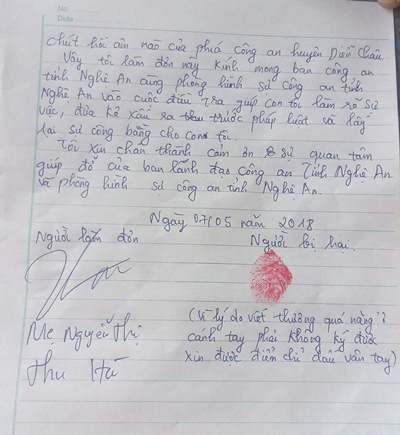 No:
Date
chút hồi âm nào của phía công an huyện Diễn Châu
Vậy tôi làm đơn này kính mong ban công an
tỉnh Nghệ An cùng phòng hình sự công an tỉnh
Nghệ An vào cuộc điều tra giúp con tôi làm rõ sự
việc, đưa kẻ xấu ra trước pháp luật và lấy
lại sự công bằng cho con tôi
Tôi xin chân thành cảm ơn sự quan tâm
giúp đỡ của ban lãnh đạo công an Tỉnh Nghệ An
và phòng hình sự công an tỉnh Nghệ An.
Ngày 07/05 năm 2018
Người làm đơn Người bị hại
Mẹ Nguyễn Thị
Thu Hà
(Vì lý do vết thương quá nặng ở
cánh tay phải không ký được
xin được điểm chỉ dấu vân tay)